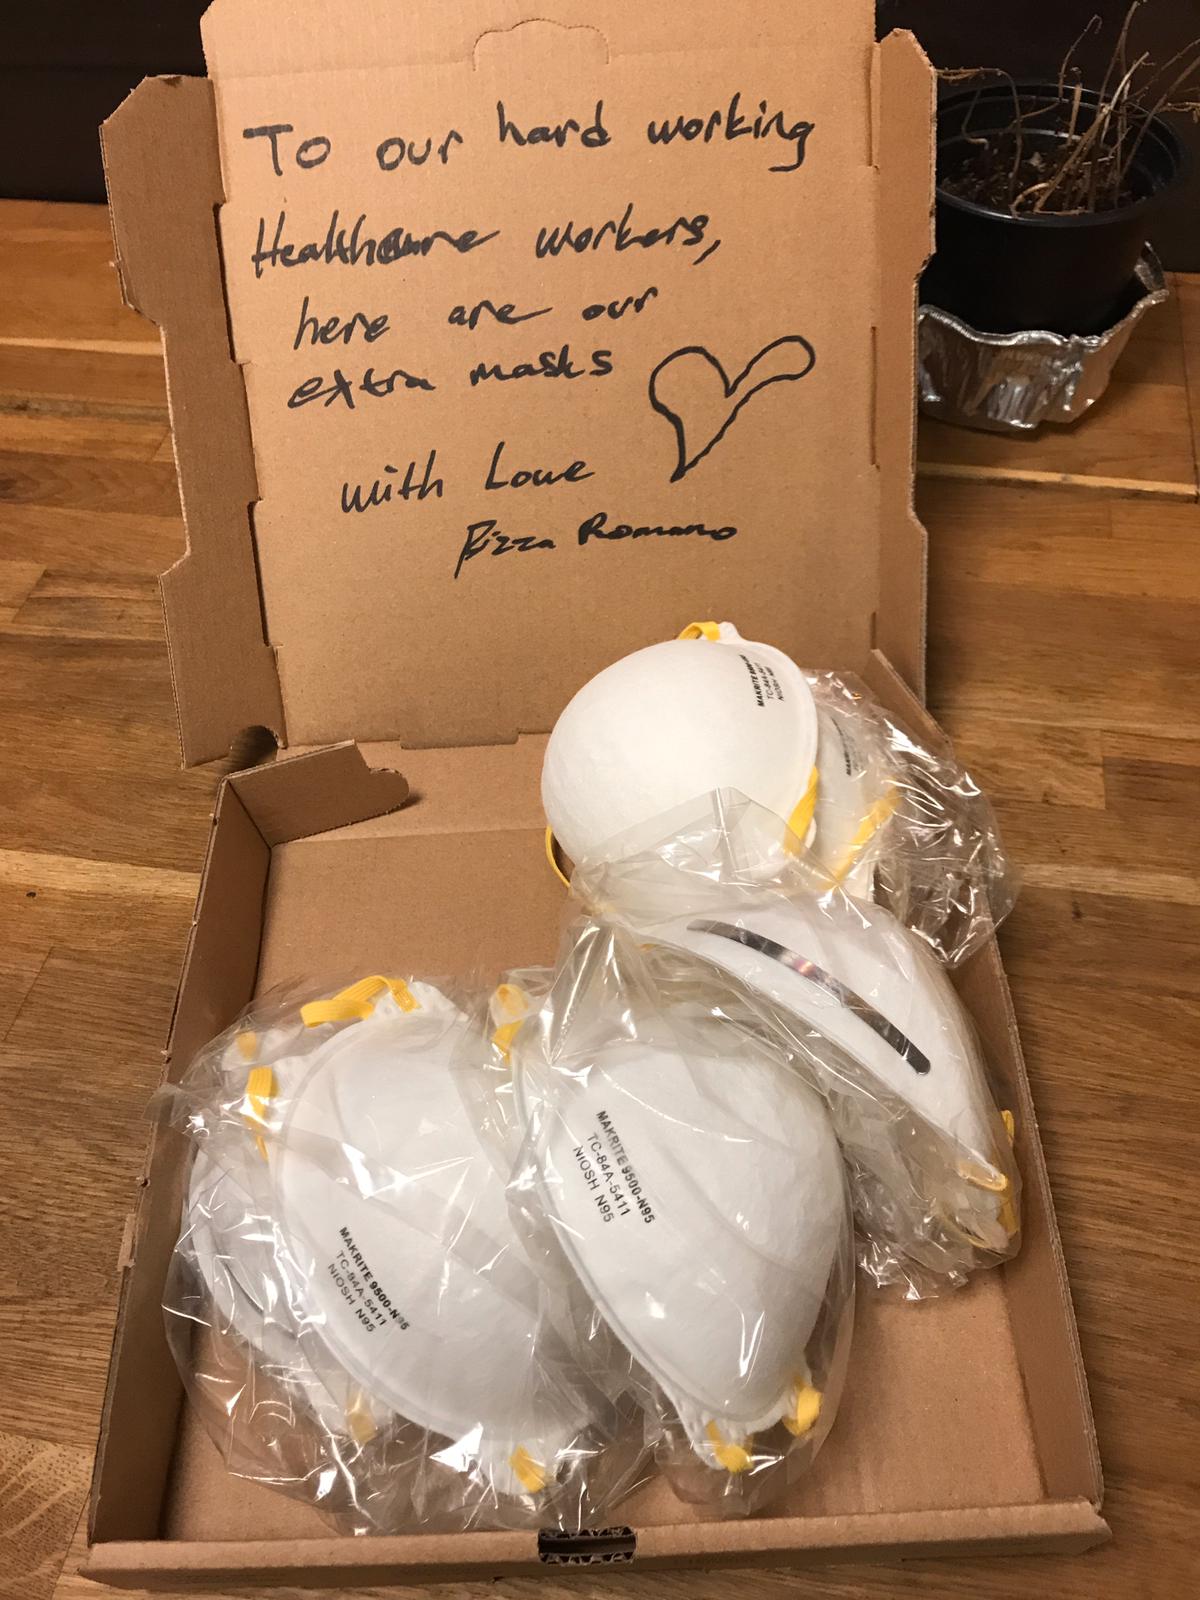 To our hard working
Healthcare workers,
here are our
extra masks
with Love
Pizza Romano
MAKRITE
TC-84A-5411
NIOSH N95
MAKRITE 9500-N95
TC-84A-5411
NIOSH N95
MAKRITE 9500-N95
TC-84A-5411
NIOSH N95